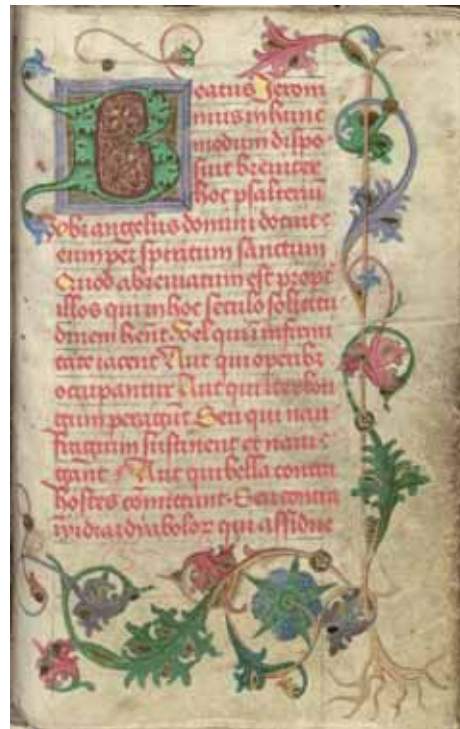 Beatus Jeroni
mus in hunc
modum dispo
suit breviter
hoc psalteriū
angelus domini docuit
eum per spiritum sanctum
Quod abreviatum est propt
illos qui in hoc seculo solicitu
dinem hēnt Vel qui ī infirmi
tate iacent Aut qui operibꝫ
occupantur Aut qui iter lon
gum peragūt Seu qui nau
fragium sustinent et navi
gant Aut qui bella contra
hostes comittunt Seu contra
īvidiā dyaboloꝝ qui assidue